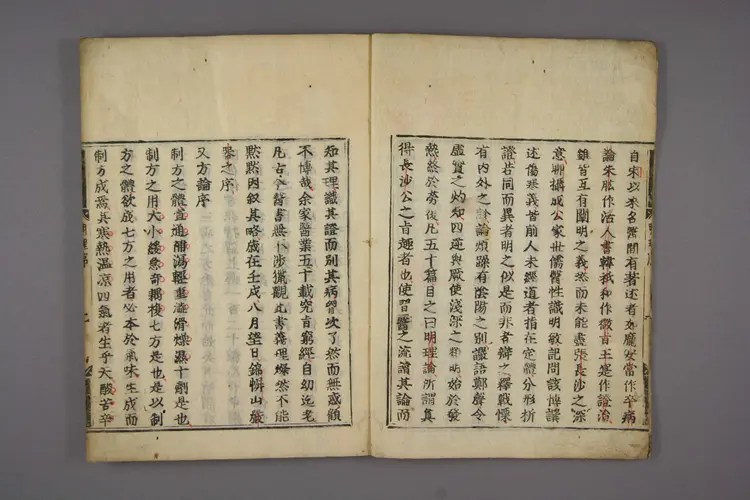 自宋以來名醫間有著述者如龐安常作卒病
論朱肱作活人書韓祗和作微旨王寔作證治
雖皆互有闡明之義然而未能盡張長沙之深
意聊攝成公家世儒醫性識明敏記問該博撰
述傷寒義皆前人未經道者指在定體分形析
證若同而異者明之似是而非者辯之釋戰慄
有內外之診論煩躁有陰陽之別讝語鄭聲令
虛實之灼知四逆與厥使淺深之類明始於發
熱終於勞復凡五十篇目之曰明理論所謂真
得長沙公之旨趣者也使習醫之流讀其論而
知其理識其證而別其病胷次了然而無惑顧
不博哉余家醫業五十載究旨窮經自幼迄老
凡古今醫書無不涉獵觀此書義理燦然不能
默默因叙其略歲在壬戌八月望日錦幈山嚴
器之序
又方論序
制方之體宣通補瀉輕重澁滑燥濕十劑是也
制方之用大小緩急奇耦複七方是也是以制
方之體欲成七方之用者必本於氣味生成而
制方成焉其寒熱溫涼四氣者生乎天酸苦辛